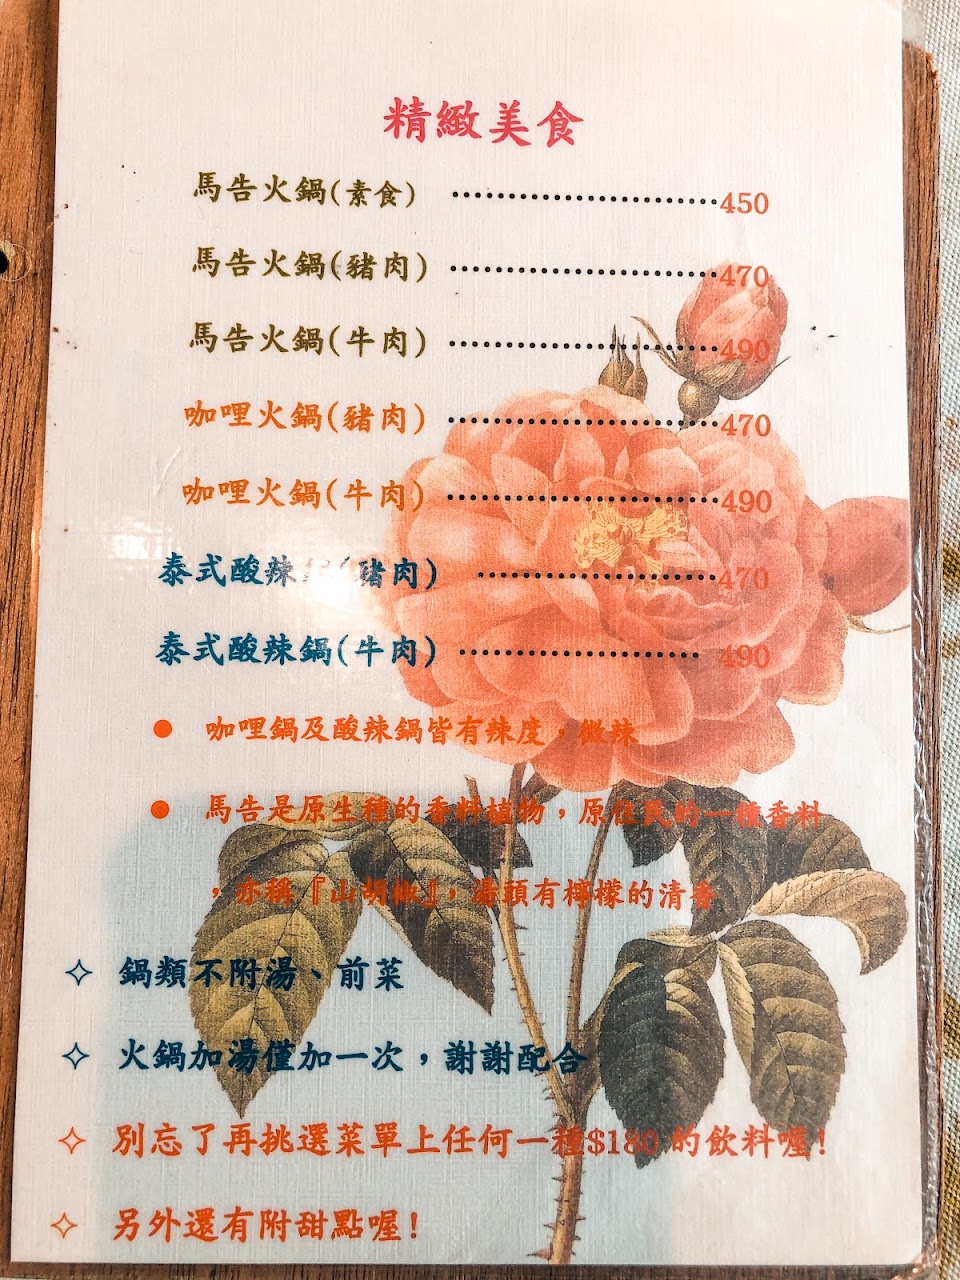 精緻美食
馬告火鍋(素食) ························450
馬告火鍋(豬肉) ························470
馬告火鍋(牛肉) ························490
咖哩火鍋(豬肉) ························470
咖哩火鍋(牛肉) ························490
泰式酸辣 (豬肉) ······················470
泰式酸辣鍋(牛肉) ······················ 490
● 咖哩鍋及酸辣鍋皆有辣度，微辣
● 馬告是原生種的香料植物，原住民的一種香料
，亦稱『山胡椒』，湯頭有檸檬的清香
✧ 鍋類不附湯、前菜
✧ 火鍋加湯僅加一次，謝謝配合
✧ 別忘了再挑選菜單上任何一種$180 的飲料喔!
✧ 另外還有附甜點喔!